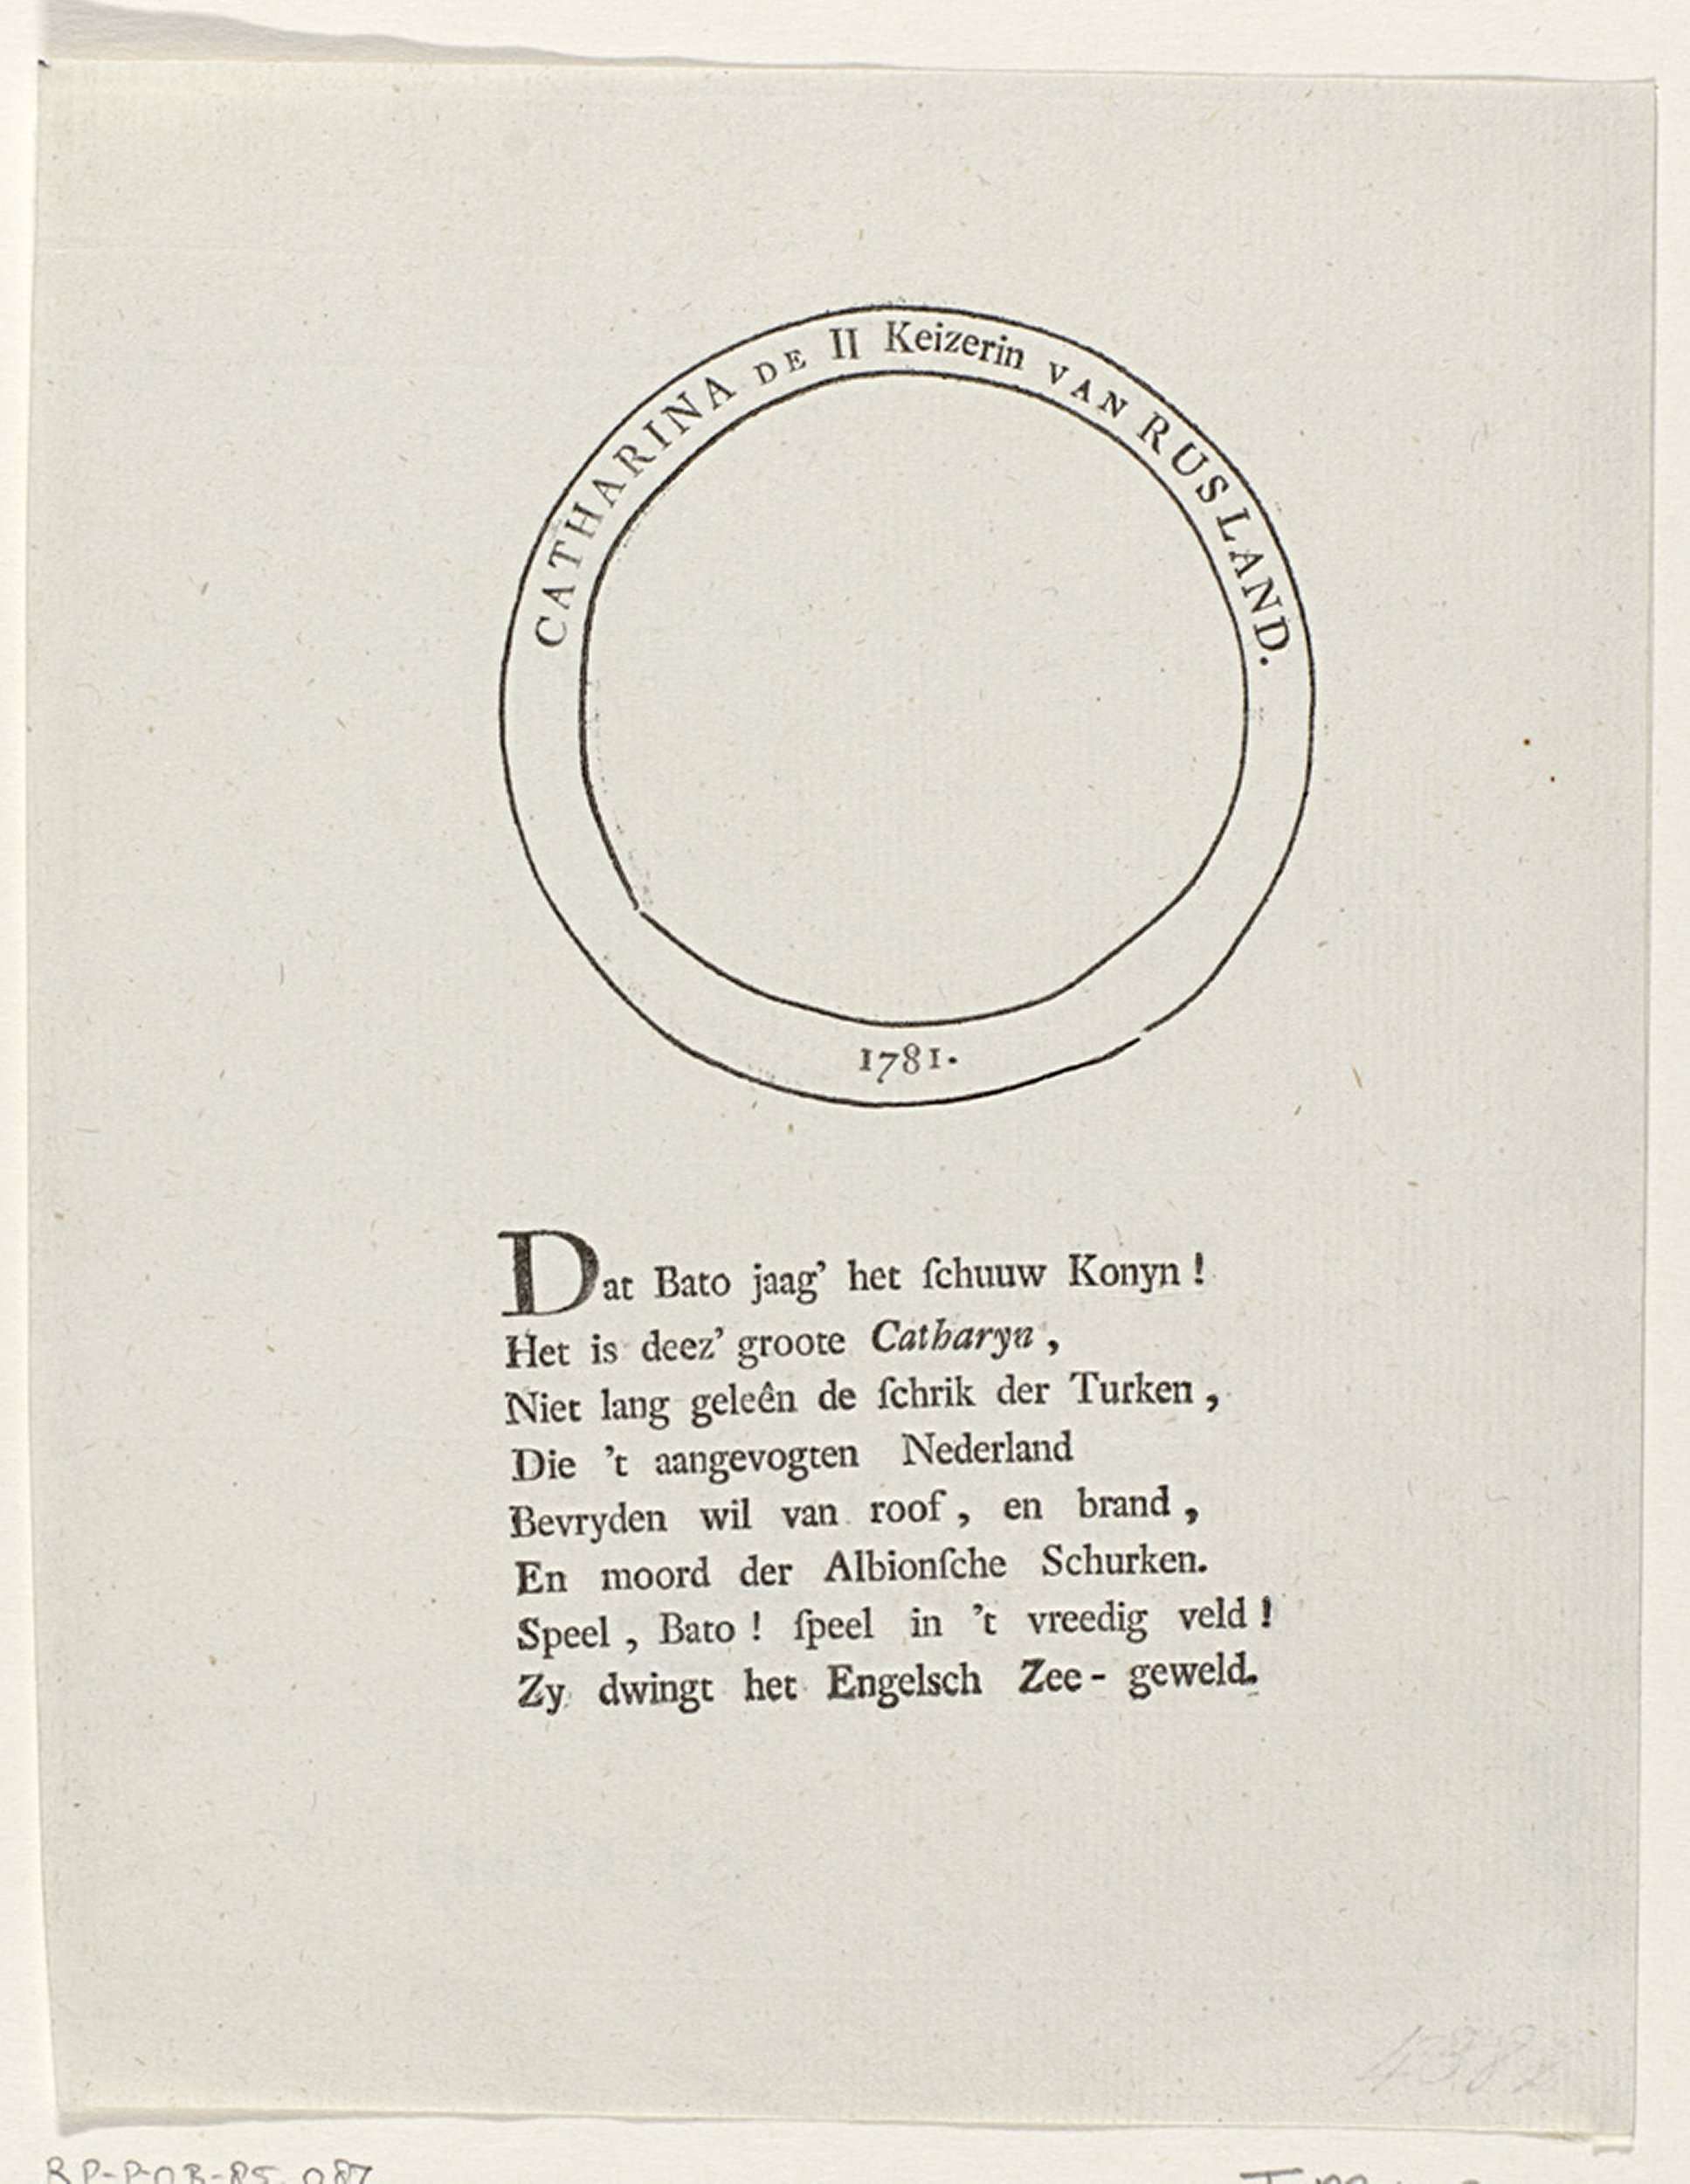 CATHARINA DE II Keizerin VAN RUSLAND.
1781.
Dat Bato jaag’ het ſchuuw Konyn !
Het is deez’ groote Catharyn ,
Niet lang geleên de ſchrik der Turken ,
Die ’t aangevogten Nederland
Bevryden wil van roof , en brand ,
En moord der Albionſche Schurken.
Speel , Bato ! ſpeel in ’t vreedig veld !
Zy dwingt het Engelsch Zee - geweld.